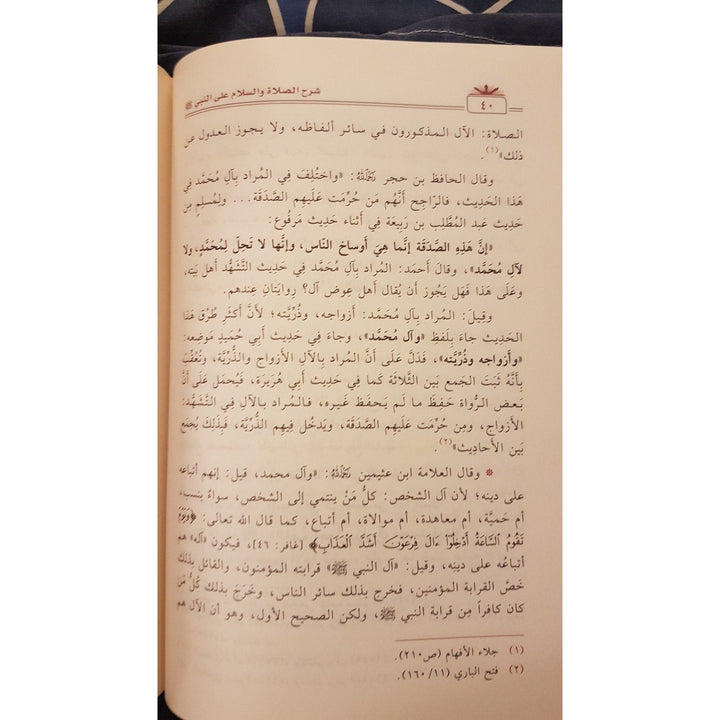 شرح الصلاة والسلام على النبي ﷺ
٤٠
الصلاة: الآل المذكورون في سائر ألفاظه، ولا يجوز العدول عن
ذلك»(١).
وقال الحافظ بن حجر رَحِمَهُ اللهُ: «واختُلِفَ فِي المُراد بِآلِ مُحَمَّد فِي
هَذا الحَدِيث، فالرّاجِح أنَّهُم مَن حُرِّمَت عَلَيهِم الصَّدَقَة... ولِمُسلِمٍ مِن
حَدِيث عَبد المُطَّلِب بن رَبِيعَة فِي أثناء حَدِيث مَرفُوع:
«إنَّ هَذِهِ الصَّدَقَة إنَّما هِيَ أوساخ النّاس، وإنَّها لا تَحِلّ لِمُحَمَّدٍ، ولا
لآلِ مُحَمَّد»، وقالَ أحمَد: المُراد بِآلِ مُحَمَّد فِي حَدِيث التَّشَهُّد أهل بَيته،
وعَلَى هَذا فَهَل يَجُوز أن يُقال أهل عِوض آل؟ رِوايَتانِ عِندهم.
وقِيلَ: المُراد بِآلِ مُحَمَّد: أزواجه، وذُرِّيَّته؛ لأنَّ أكثَرِ طُرُق هَذا
الحَدِيث جاءَ بِلَفظِ «وآلِ مُحَمَّد»، وجاءَ فِي حَدِيث أبِي حُمَيدٍ مَوضِعه:
«وأزواجه وذُرِّيَّته»، فَدَلَّ عَلَى أنَّ المُراد بِالآلِ الأزواج والذُّرِّيَّة، وتُعُقِّبَ
بِأنَّهُ ثَبَتَ الجَمع بَين الثَّلاثَة كَما فِي حَدِيث أبِي هُرَيرَة، فَيُحمَل عَلَى أنَّ
بَعض الرُّواة حَفِظَ ما لَم يَحفَظ غَيره، فالمُراد بِالآلِ فِي التَّشَهُّد:
الأزواج، ومَن حُرِّمَت عَلَيهِم الصَّدَقَة، ويَدخُل فِيهِم الذُّرِّيَّة، فَبِذَلِكَ يُجمَع
بَين الأحادِيث»(٢).
* وقال العلامة ابن عثيمين رَحِمَهُ اللهُ: «وآل محمد، قيل: إنهم أتباعه
على دينه؛ لأن آل الشخص: كلُّ مَنْ ينتمي إلى الشخص، سواءٌ بنسب،
أم حَميَّة، أم معاهدة، أم موالاة، أم أتباع، كما قال الله تعالى: ﴿وَيَوْمَ
تَقُومُ السَّاعَةُ أَدْخِلُوٓا۟ ءَالَ فِرْعَوْنَ أَشَدَّ الْعَذَابِ﴾ [غافر: ٤٦]، فيكون «آله» هم
أتباعُه على دينِه، وقيل: «آل النبي ﷺ» قرابته المؤمنون، والقائل بذلك
خَصَّ القرابة المؤمنين، فخرج بذلك سائر الناس، وخَرَجَ بذلك كُلُّ مَن
كان كافراً مِن قرابة النبي ﷺ، ولكن الصحيح الأول، وهو أن الآل هم
(١) جلاء الأفهام (ص٢١٠).
(٢) فتح الباري (١١/ ١٦٠).